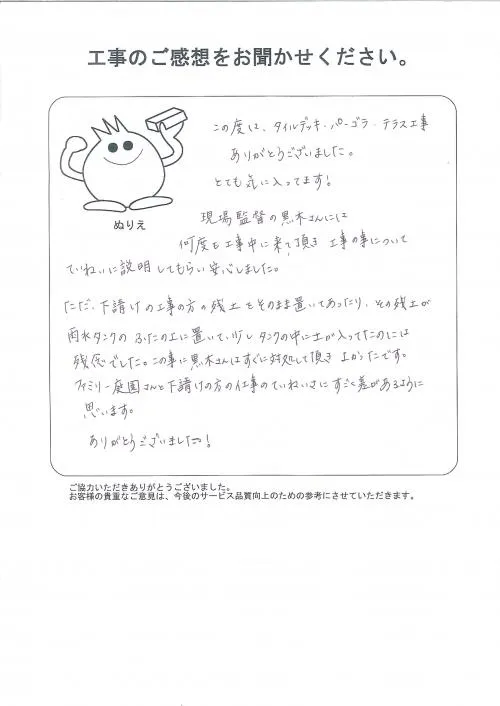 工事のご感想をお聞かせください。
この度は、タイルデッキ・パーゴラ・テラス工事
ありがとうございました。
とても気に入ってます！
ぬりえ
現場監督の黒木さんには
何度も工事中に来て頂き 工事の事について
ていねいに説明してもらい安心しました。
ただ、下請けの工事の方の残土をそのまま置いてあったり、その残土が
雨水タンクのふたの上に置いて、少しタンクの中に土が入ってたのには
残念でした。この事に黒木さんはすぐに対処して頂き よかったです。
ファミリー庭園さんと下請けの方の仕事のていねいさにすごく差があるように
思います。
ありがとうございました！
ご協力いただきありがとうございました。
お客様の貴重なご意見は、今後のサービス品質向上のための参考にさせていただきます。